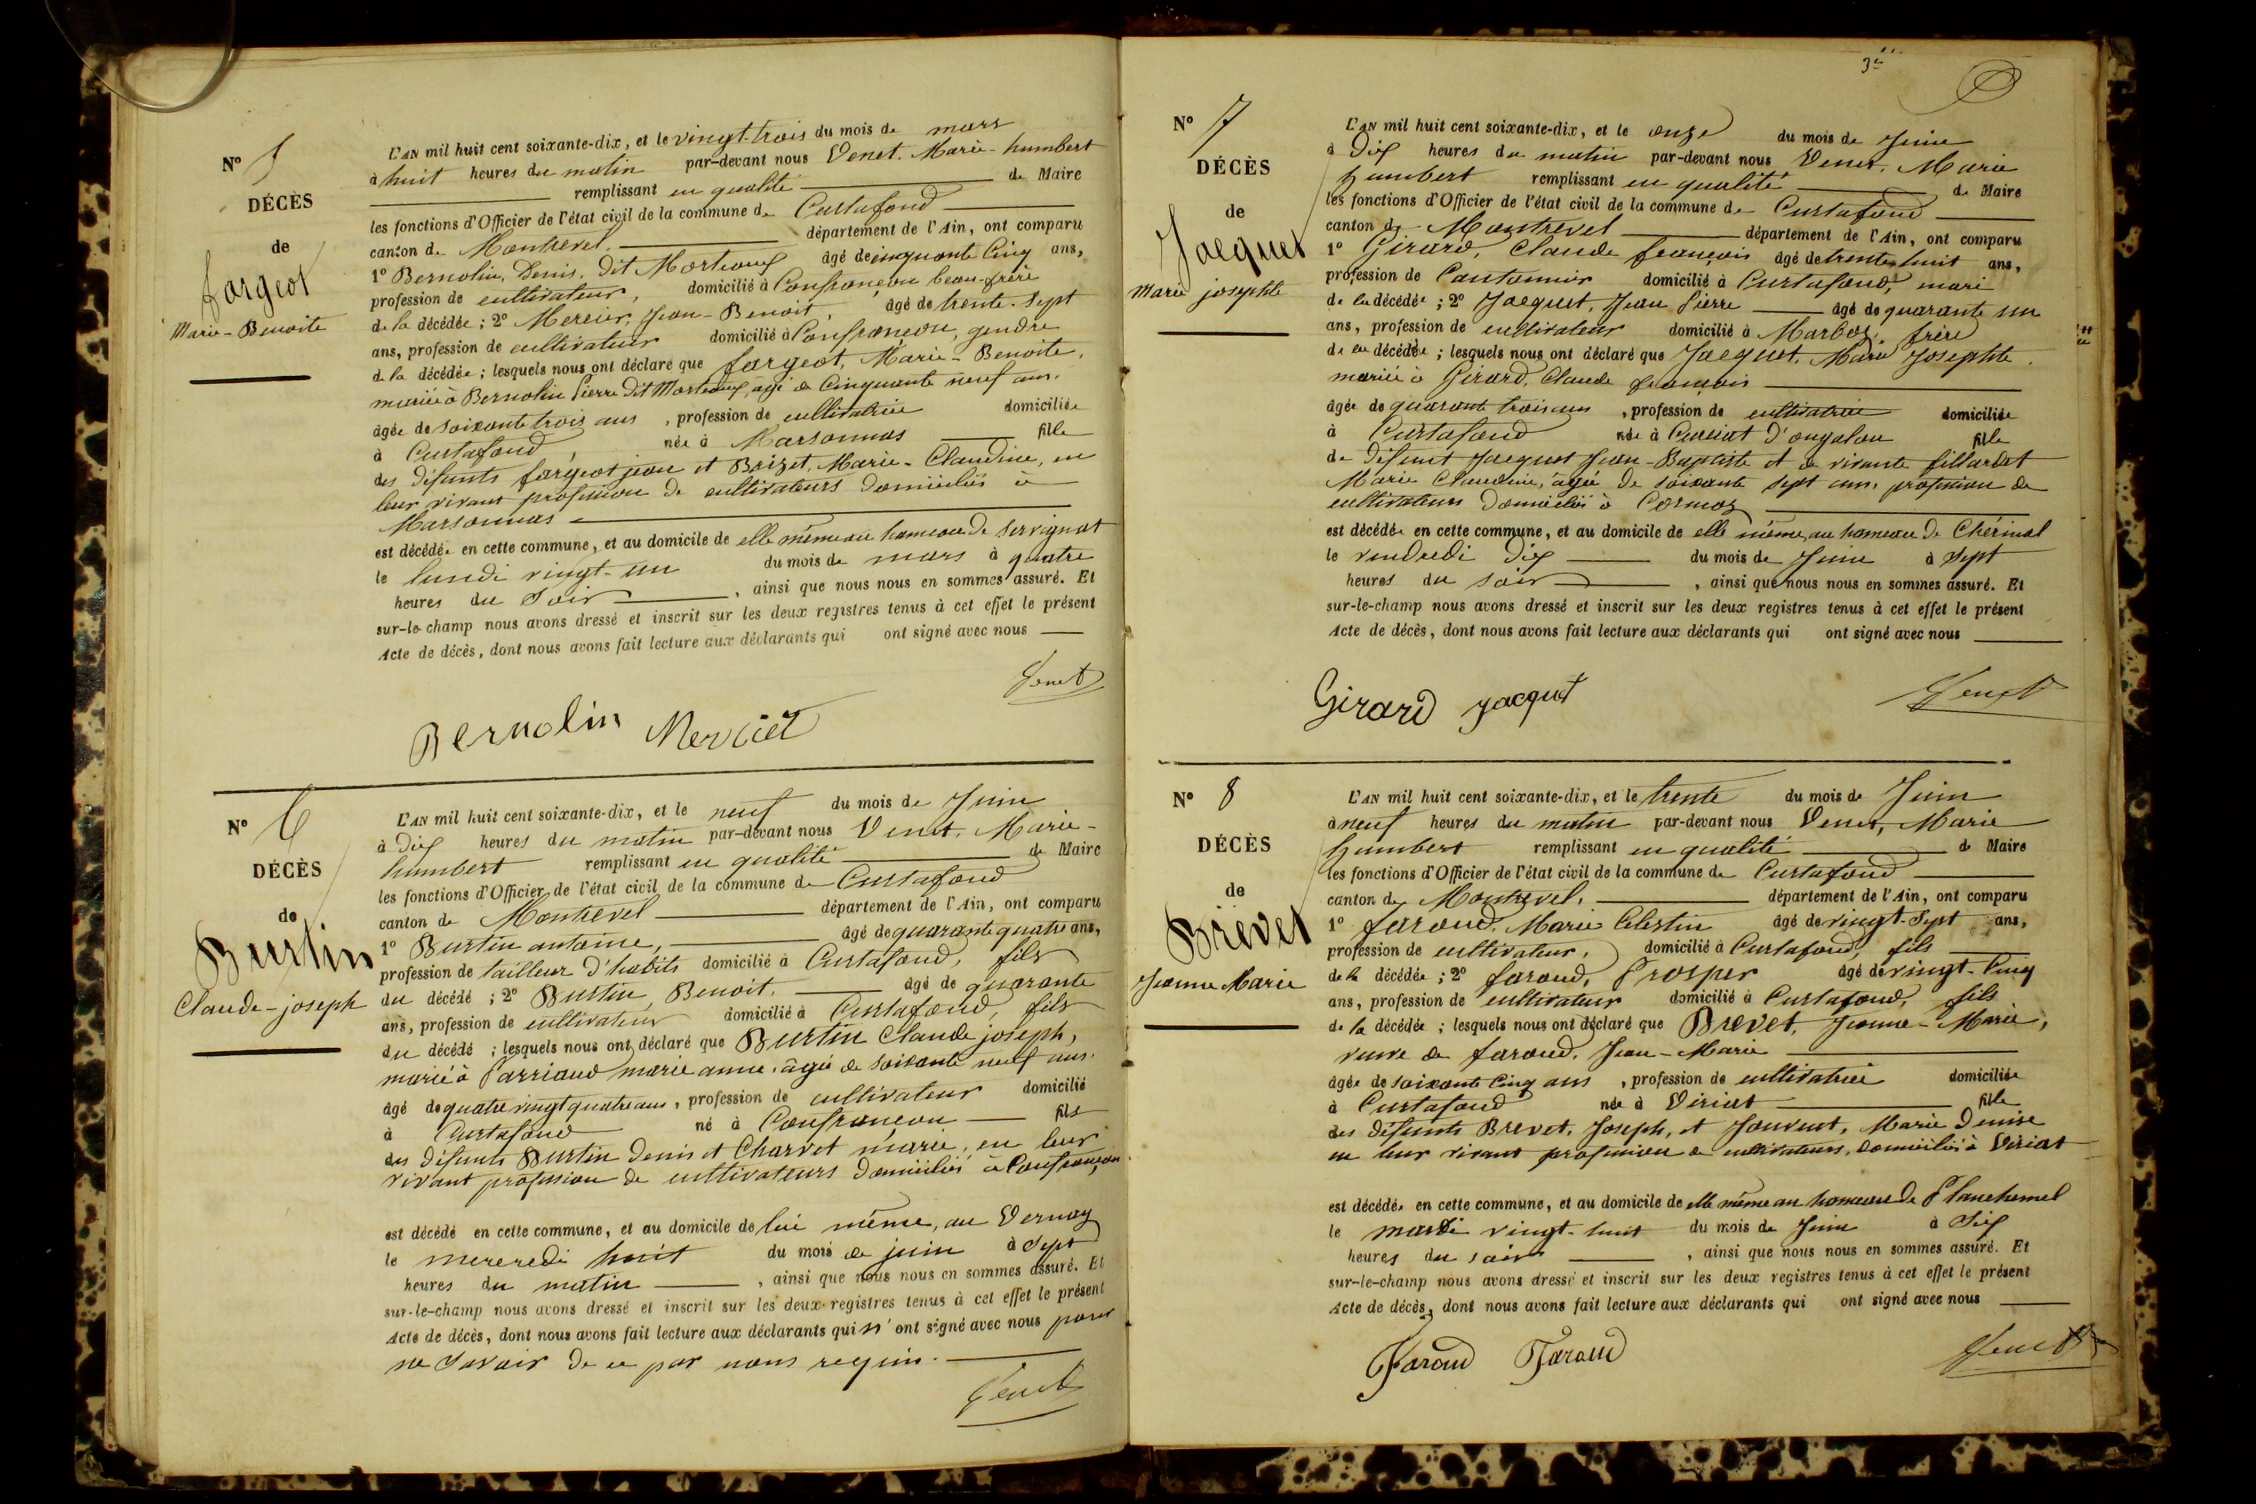 N° 5
DÉCÈS
de
fargeot
Marie-Benoite
L'AN mil huit cent soixante-dix, et le vingt-trois du mois de mars
à huit heures du matin par-devant nous Venet. Marie-humbert
remplissant en qualité de Maire
les fonctions d'Officier de l'état civil de la commune de Curtafond
canton de Montrevel département de l'Ain, ont comparu
1° Bernolin, Denis, dit Morteaux âgé de cinquante cinq ans,
profession de cultivateur, domicilié à Confrançon beau-frère
de la décédée ; 2° Mercier, Jean-Benoit, âgé de trente-sept
ans, profession de cultivateur domicilié à Confrançon, gendre
de la décédée ; lesquels nous ont déclaré que fargeot, Marie-Benoite,
mariée à Bernolin Pierre dit Morteaux, agé de Cinquante neuf ans.
âgée de soixante trois ans, profession de cultivatrice domiciliée
à Curtafond, née à Marsonnas fille
des défunts fargeot jean et Brizet, Marie-Claudine, en
leur vivant profession de cultivateurs domiciliés à
Marsonnas
est décédée en cette commune, et au domicile de elle même au hameau de Servignat
le lundi vingt-un du mois de mars à quatre
heures du soir, ainsi que nous nous en sommes assuré. Et
sur-le-champ nous avons dressé et inscrit sur les deux registres tenus à cet effet le présent
Acte de décès, dont nous avons fait lecture aux déclarants qui ont signé avec nous
Venet
Bernolin Merciet
N° 6
DÉCÈS
de
Burtin
Claude-joseph
L'AN mil huit cent soixante-dix, et le neuf du mois de Juin
à dix heures du matin par-devant nous Venet. Marie-
humbert remplissant en qualité de Maire
les fonctions d'Officier de l'état civil de la commune de Curtafond
canton de Montrevel département de l'Ain, ont comparu
1° Burtin antoine, âgé de quarante quatre ans,
profession de tailleur d'habits domicilié à Curtafond, fils
du décédé ; 2° Burtin, Benoit, âgé de quarante
ans, profession de cultivateur domicilié à Curtafond, fils
du décédé ; lesquels nous ont déclaré que Burtin Claude joseph,
marié à Parriaud marie anne, âgée de soixante neuf ans.
âgé de quatre vingt quatre ans, profession de cultivateur domicilié
à Curtafond né à Confrançon fils
des défunts Burtin Denis et Charvet marie, en leur
vivant profession de cultivateurs domiciliés à Confrançon
est décédé en cette commune, et au domicile de lui même, au Vernay
le mercredi huit du mois de juin à sept
heures du matin, ainsi que nous nous en sommes assuré. Et
sur-le-champ nous avons dressé et inscrit sur les deux registres tenus à cet effet le présent
Acte de décès, dont nous avons fait lecture aux déclarants qui n'ont signé avec nous pour
ne savoir de ce par nous requis.
Venet
N° 7
DÉCÈS
de
Jacquet
Marie josephte
L'AN mil huit cent soixante-dix, et le onze du mois de Juin
à dix heures du matin par-devant nous Venet, Marie
humbert remplissant en qualité de Maire
les fonctions d'Officier de l'état civil de la commune de Curtafond
canton de Montrevel département de l'Ain, ont comparu
1° Girard, Claude françois âgé de trente-huit ans,
profession de Cantonnier domicilié à Curtafond, mari
de la décédée ; 2° Jacquet, Jean Pierre âgé de quarante un
ans, profession de cultivateur domicilié à Marboz, frère
de la décédée ; lesquels nous ont déclaré que Jacquet, Marie Josephte.
mariée à Girard, Claude françois
âgée de quarante trois ans, profession de cultivatrice domiciliée
à Curtafond née à Curciat d'ongalon fille
de défunt Jacquet Jean-Baptiste et de vivante fillardet
Marie Claudine, agée de soixante sept ans, profession de
cultivateurs domiciliés à Cormoz
est décédée en cette commune, et au domicile de elle même, au hameau de Chérinal
le vendredi dix du mois de Juin à sept
heures du soir, ainsi que nous nous en sommes assuré. Et
sur-le-champ nous avons dressé et inscrit sur les deux registres tenus à cet effet le présent
Acte de décès, dont nous avons fait lecture aux déclarants qui ont signé avec nous
Girard Jacquet Venet
N° 8
DÉCÈS
de
Brevet
Jeanne Marie
L'AN mil huit cent soixante-dix, et le trente du mois de Juin
à neuf heures du matin par-devant nous Venet, Marie
humbert remplissant en qualité de Maire
les fonctions d'Officier de l'état civil de la commune de Curtafond
canton de Montrevel. département de l'Ain, ont comparu
1° faraud, Marie Célestin âgé de vingt-sept ans,
profession de cultivateur, domicilié à Curtafond, fils
de la décédée ; 2° faraud, Prosper âgé de vingt-cinq
ans, profession de cultivateur domicilié à Curtafond, fils
de la décédée ; lesquels nous ont déclaré que Brevet, Jeanne-Marie,
veuve de faraud, Jean-Marie
âgée de soixante cinq ans, profession de cultivatrice domiciliée
à Curtafond née à Viriat fille
des défunts Brevet, Joseph, et Jouvent, Marie Denise
en leur vivant profession de cultivateurs, domiciliés à Viriat
est décédée en cette commune, et au domicile de elle même au hameau de Planchemel
le mardi vingt-huit du mois de Juin à dix
heures du soir, ainsi que nous nous en sommes assuré. Et
sur-le-champ nous avons dressé et inscrit sur les deux registres tenus à cet effet le présent
Acte de décès, dont nous avons fait lecture aux déclarants qui ont signé avec nous
Faraud Faraud Venet